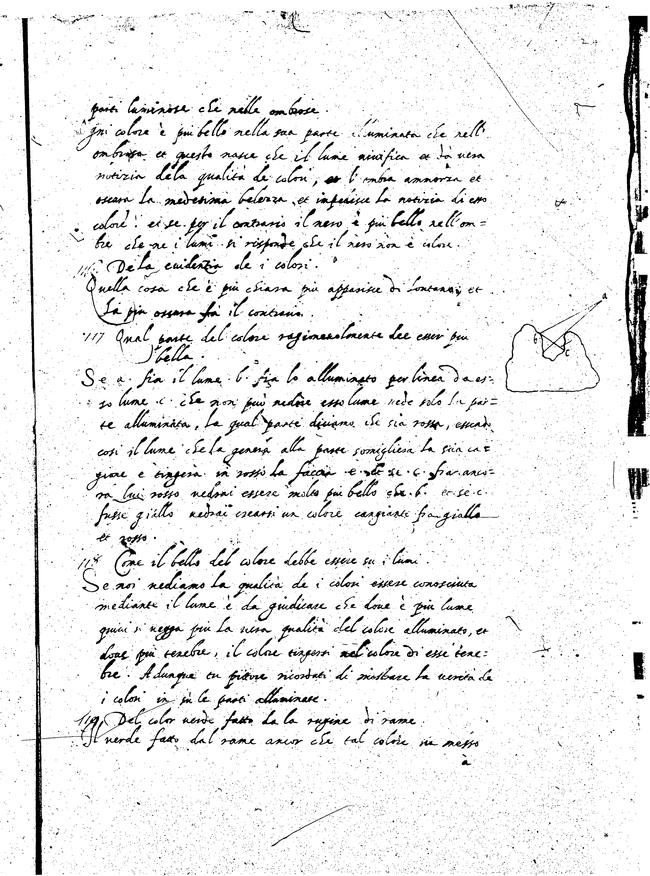 parti luminose che nelle ombrose.
Ogni colore è piu bello nella sua parte illuminata che nell'
ombrosa et questo nasce che il lume vivifica et dà vera
notitia dela qualità de colori, et l'ombra ammorza et
oscura la medesima belezza et impedisce la notitia di esso
colore: et se per il contrario il nero è piu bello nell'om=
bre che ne i lumi si risponde che il nero non è colore.
116 Dela evidentia de i colori.
Quella cosa che è piu chiara piu apparisce di lontano, et
la piu oscura fà il contrario.
117 Qual parte del colore ragionevolmente dee esser piu
bella.
Se a. fia il lume b. fia lo alluminato per linea da es=
so lume c. che non può vedere esso lume vede solo la par=
te alluminata, la qual parte diciamo che sia rossa, essendo
cosi il lume che la genera alla parte somigliera la sua ca=
gione e tingerà in rosso la faccia c. et se c. fia anco=
ra lui rosso vedrai essere molto piu bello che b. et se c.
fusse giallo vedrai crearsi un colore cangiante fra giallo
et rosso.
118 Come il bello del colore debbe essere su i lumi.
Se noi vediamo la qualità de i colori essere conosciuta
mediante il lume è da giudicare che dove è più lume
quivi si vegga più la vera qualità del colore alluminato, et
dove più tenebre, il colore tingersi nel colore di esse tene=
bre. Adunque tu pittore ricordati di mostrare la verita de
i colori in su le parti alluminate.
119 Del color verde fatto da la rugine di rame.
Il verde fatto dal rame ancor che tal colore sia messo
à
a
b
c